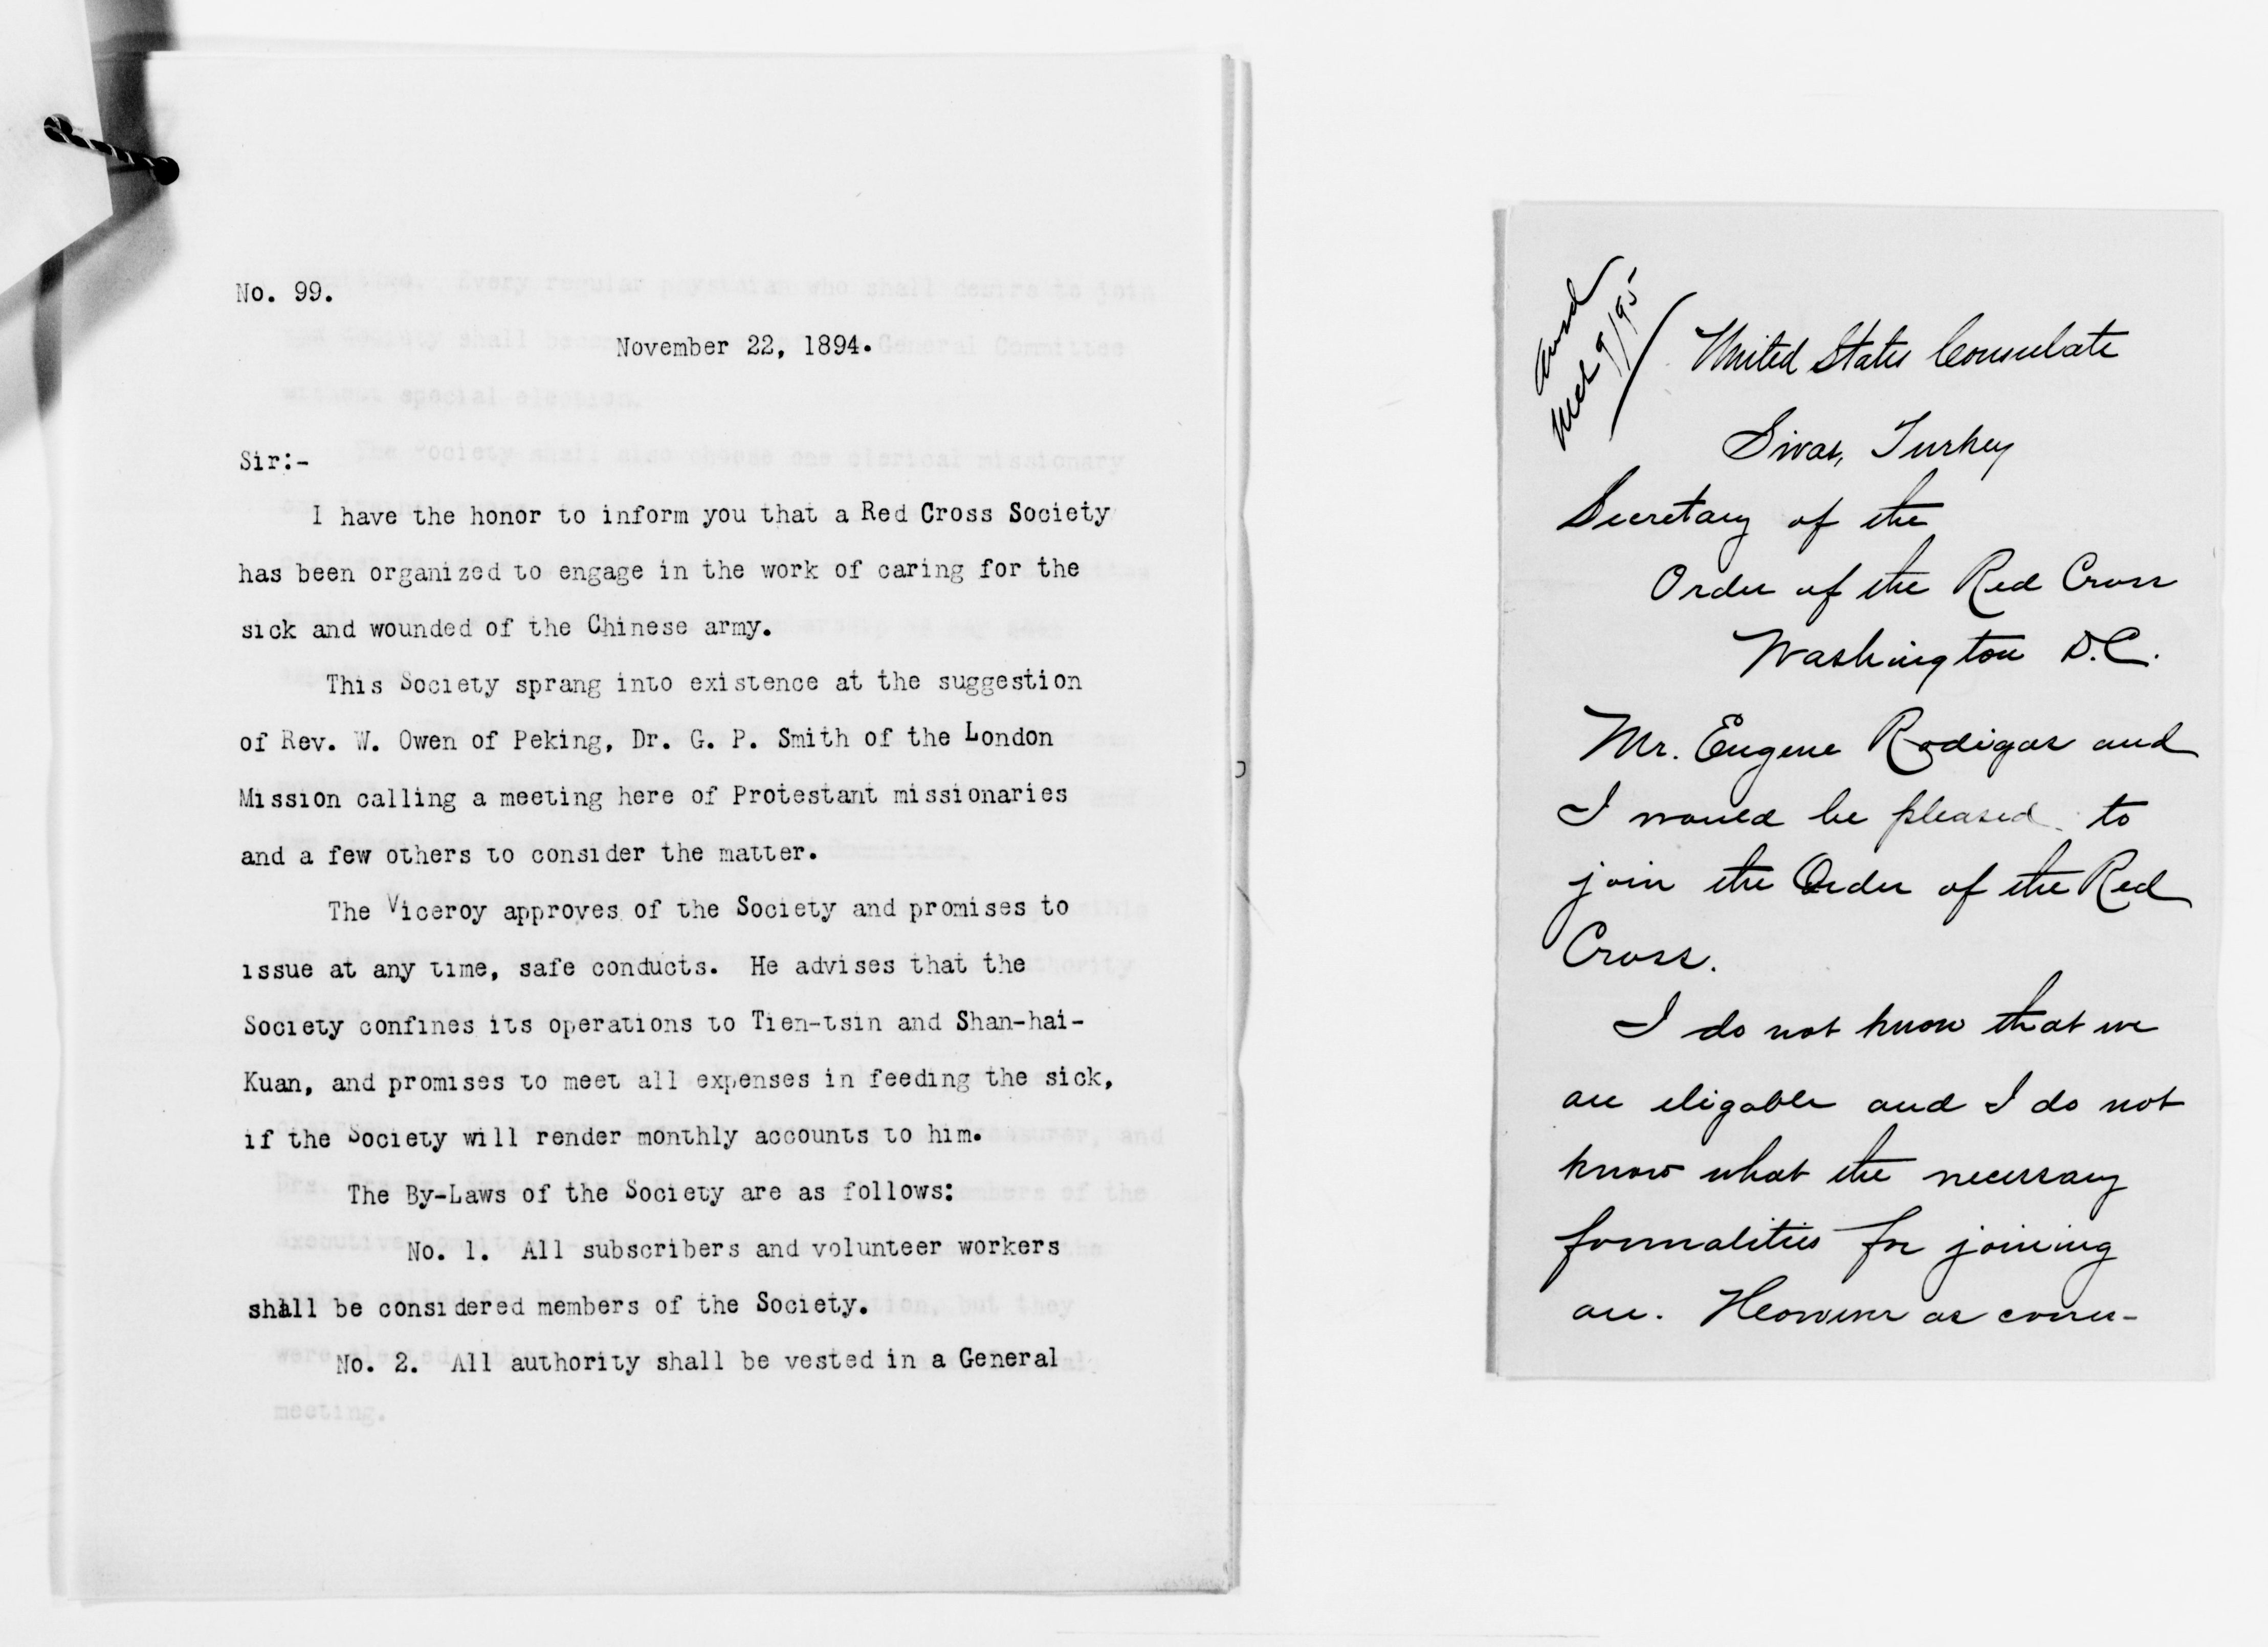 No. 99.
November 22, 1894.
Sir:-
I have the honor to inform you that a Red Cross Society
has been organized to engage in the work of caring for the
sick and wounded of the Chinese army.
This Society sprang into existence at the suggestion
of Rev. W. Owen of Peking, Dr. G. P. Smith of the London
Mission calling a meeting here of Protestant missionaries
and a few others to consider the matter.
The Viceroy approves of the Society and promises to
issue at any time, safe conducts. He advises that the
Society confines its operations to Tien-tsin and Shan-hai-
Kuan, and promises to meet all expenses in feeding the sick,
if the Society will render monthly accounts to him.
The By-Laws of the Society are as follows:
No. 1. All subscribers and volunteer workers
shall be considered members of the Society.
No. 2. All authority shall be vested in a General
Answd
Mch 9/95
United States Consulate
Sivas, Turkey
Secretary of the
Order of the Red Cross
Washington D.C.
Mr. Eugene Rodigas and
I would be pleased to
join the Order of the Red
Cross.
I do not know that we
are eligable and I do not
know what the necessary
formalities for joining
are. However as consu-